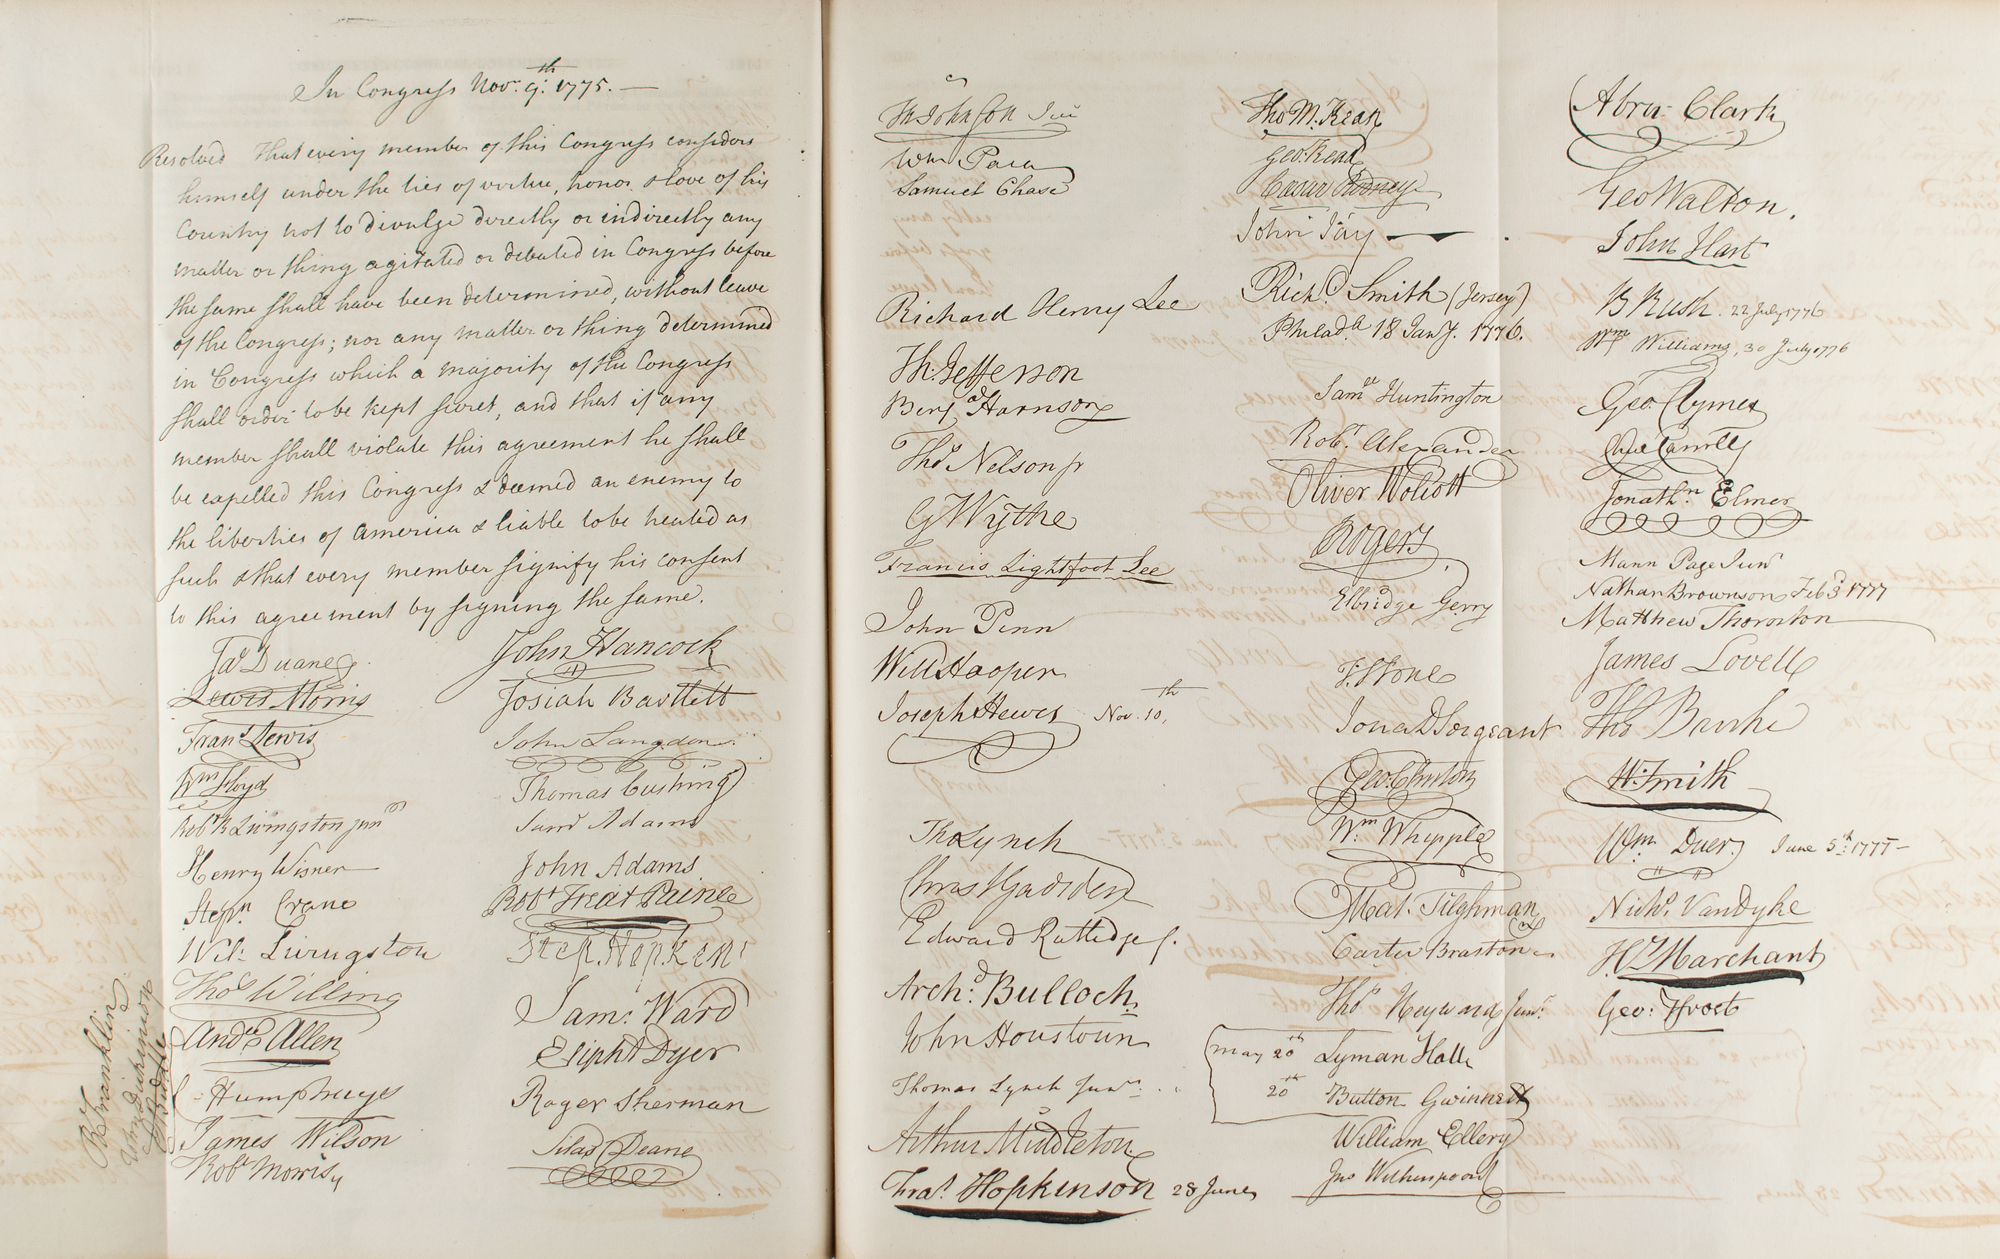 In Congress Novr. 9th. 1775.—
Resolved That every member of this Congress considers
himself under the ties of virtue, honor & love of his
Country not to divulge directly or indirectly any
matter or thing agitated or debated in Congress before
the same shall have been determined, without leave
of the Congress; nor any matter or thing determined
in Congress which a majority of the Congress
shall order to be kept secret, and that if any
member shall violate this agreement he shall
be expelled this Congress & deemed an enemy to
the liberties of America & liable to be treated as
such & that every member signify his consent
to this agreement by signing the same.
Jas Duane
Lewis Morris
Frans Lewis
Wm Floyd
Robt R Livingston junr
Henry Wisner
Stepn Crane
Wil: Livingston
Thos Willing
Andw Allen
C Humphreys
James Wilson
Robt Morris
B Franklin
John Dickinson
John Hancock
Josiah Bartlett
John Langdon
Thomas Cushing
Saml Adams
John Adams
Robt Treat Paine
Step. Hopkins
Sam: Ward
Elipht Dyer
Roger Sherman
Silas Deane
Th Johnson Jun
Wm Paca
Samuel Chase
Richard Henry Lee
Th: Jefferson
Benja Harrison
Thos Nelson jr
G Wythe
Francis Lightfoot Lee
John Penn
Will Hooper
Joseph Hewes Nov. 10th,
Tho Lynch
Chris Gadsden
Edward Rutledge
Archd: Bulloch
John Houstoun
Thomas Lynch Junr.
Arthur Middleton
Fras. Hopkinson 28 June
Tho M:Kean
Geo: Read
Caesar Rodney
John Jay
Richd. Smith (Jersey)
Philada. 18 Jany. 1776.
Saml Huntington
Robt Alexander
Oliver Wolcott
Rogers
Elbridge Gerry
T. Stone
Jona D Sergeant
Geo. Clinton
Wm Whipple
Mat. Tilghman
Carter Braxton
Thos Heyward Junr.
May 20th Lyman Hall
20th Button Gwinnett
William Ellery
Jno Witherspoon
Abra: Clark
Geo Walton.
John Hart
B Rush 22 July 1776
Wm Williams, 30 July 1776
Geo. Clymer
Chas Carroll
Jonathn. Elmer
Mann Page Junr
Nathan Brownson Feb 3d 1777
Matthew Thornton
James Lovell
Thos Burke
W. Smith
Wm Duer June 5th 1777—
Nichs. VanDyke
Hy Marchant
Geo: Frost